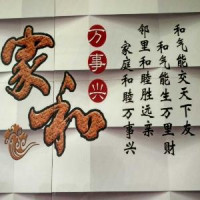 家和
万事兴
和气能交天下友
和气能生万里财
邻里和睦胜远亲
家庭和睦万事兴